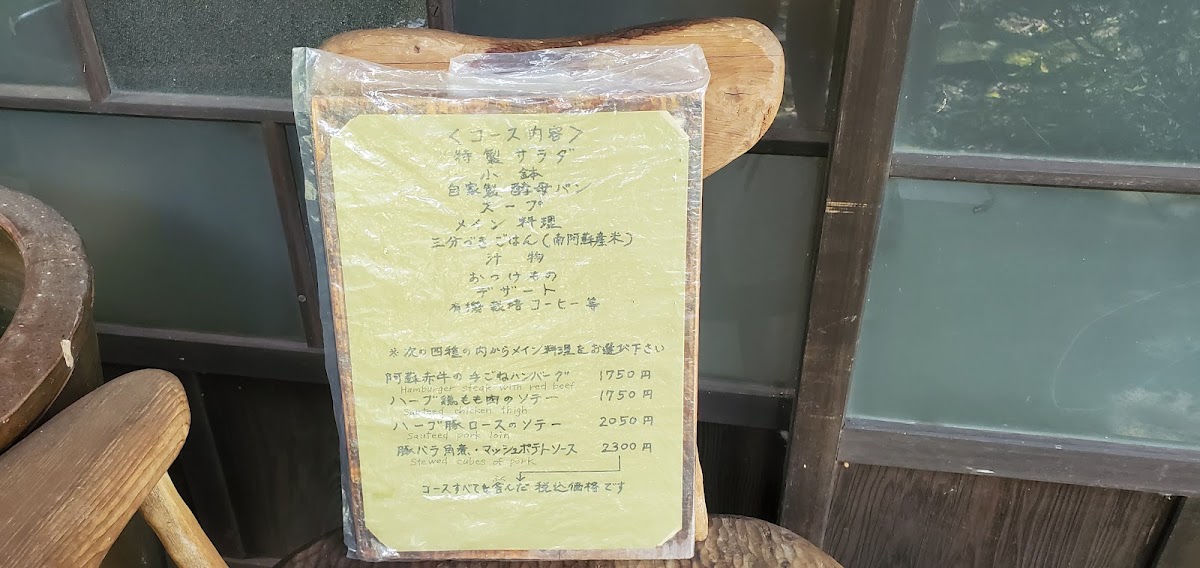 <コース内容>
特製サラダ
小鉢
自家製酵母パン
スープ
メイン料理
三分づきごはん(南阿蘇産米)
汁物
おつけもの
デザート
有機栽培コーヒー等
※次の四種の内からメイン料理をお選び下さい
阿蘇赤牛の手ごねハンバーグ 1750円
Hamburger steak with red beef
ハーブ鶏もも肉のソテー 1750円
Sauteed chicken thigh
ハーブ豚ロースのソテー 2050円
Sauteed pork loin
豚バラ角煮・マッシュポテトソース 2300円
Stewed cubes of pork
コースすべてを含んだ税込価格です